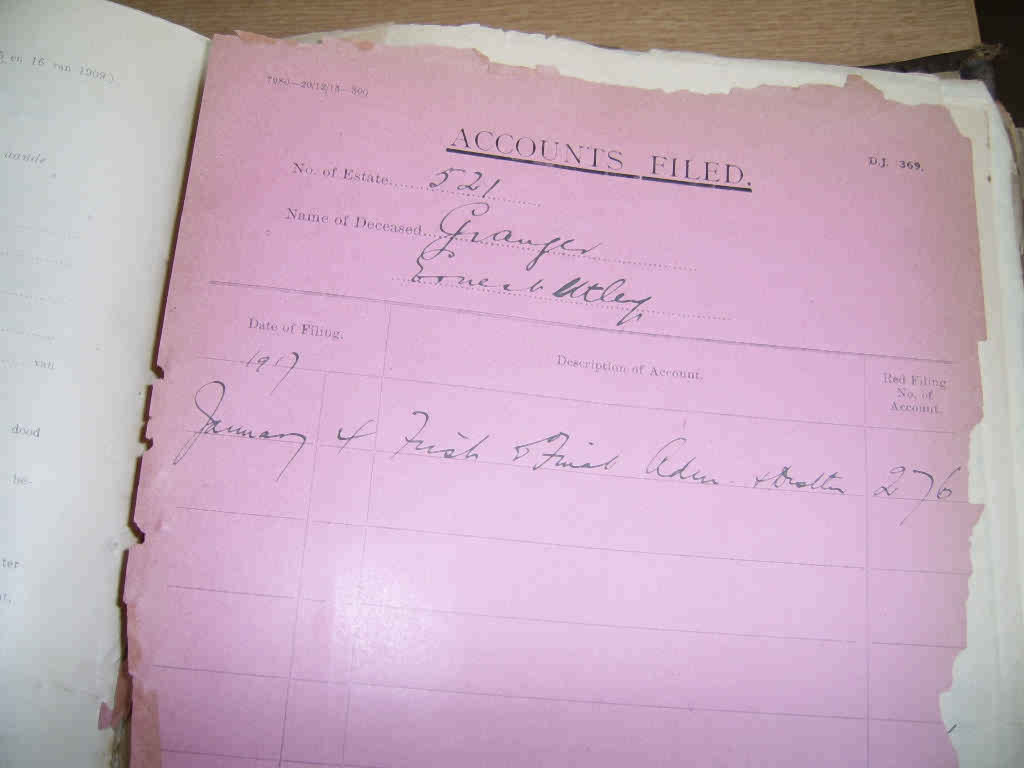 en 16 van 1909.)
aande
van
dood
be-
ter
7980—20/12/15—500
ACCOUNTS FILED.
D.J. 369.
No. of Estate 521
Name of Deceased Granger
Ernest Utley
Date of Filing.
Description of Account.
Red Filing
No. of
Account.
1917
January 4 First & Final Adm. & Distbn 276